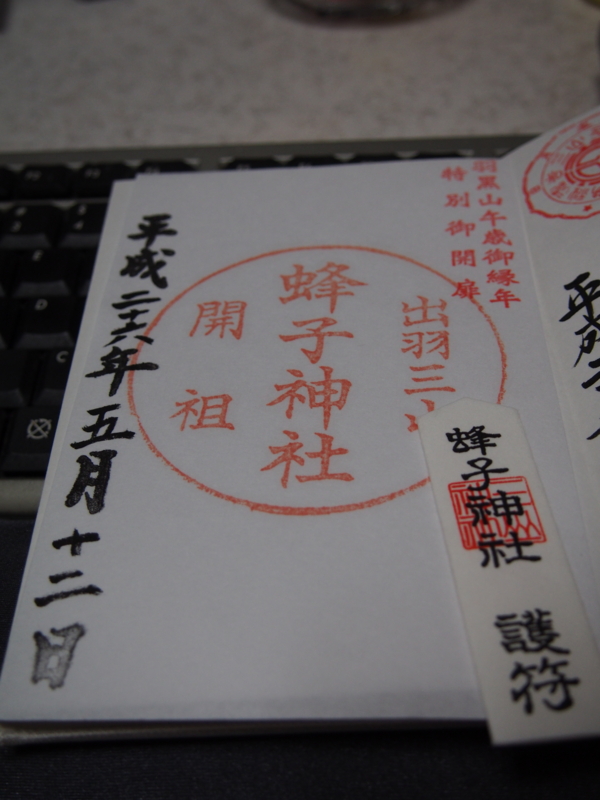 羽黒山午歳御縁年
特別御開扉
出羽三山
蜂子神社
開祖
平成二十六年五月十二日
蜂子神社
護符
平成二